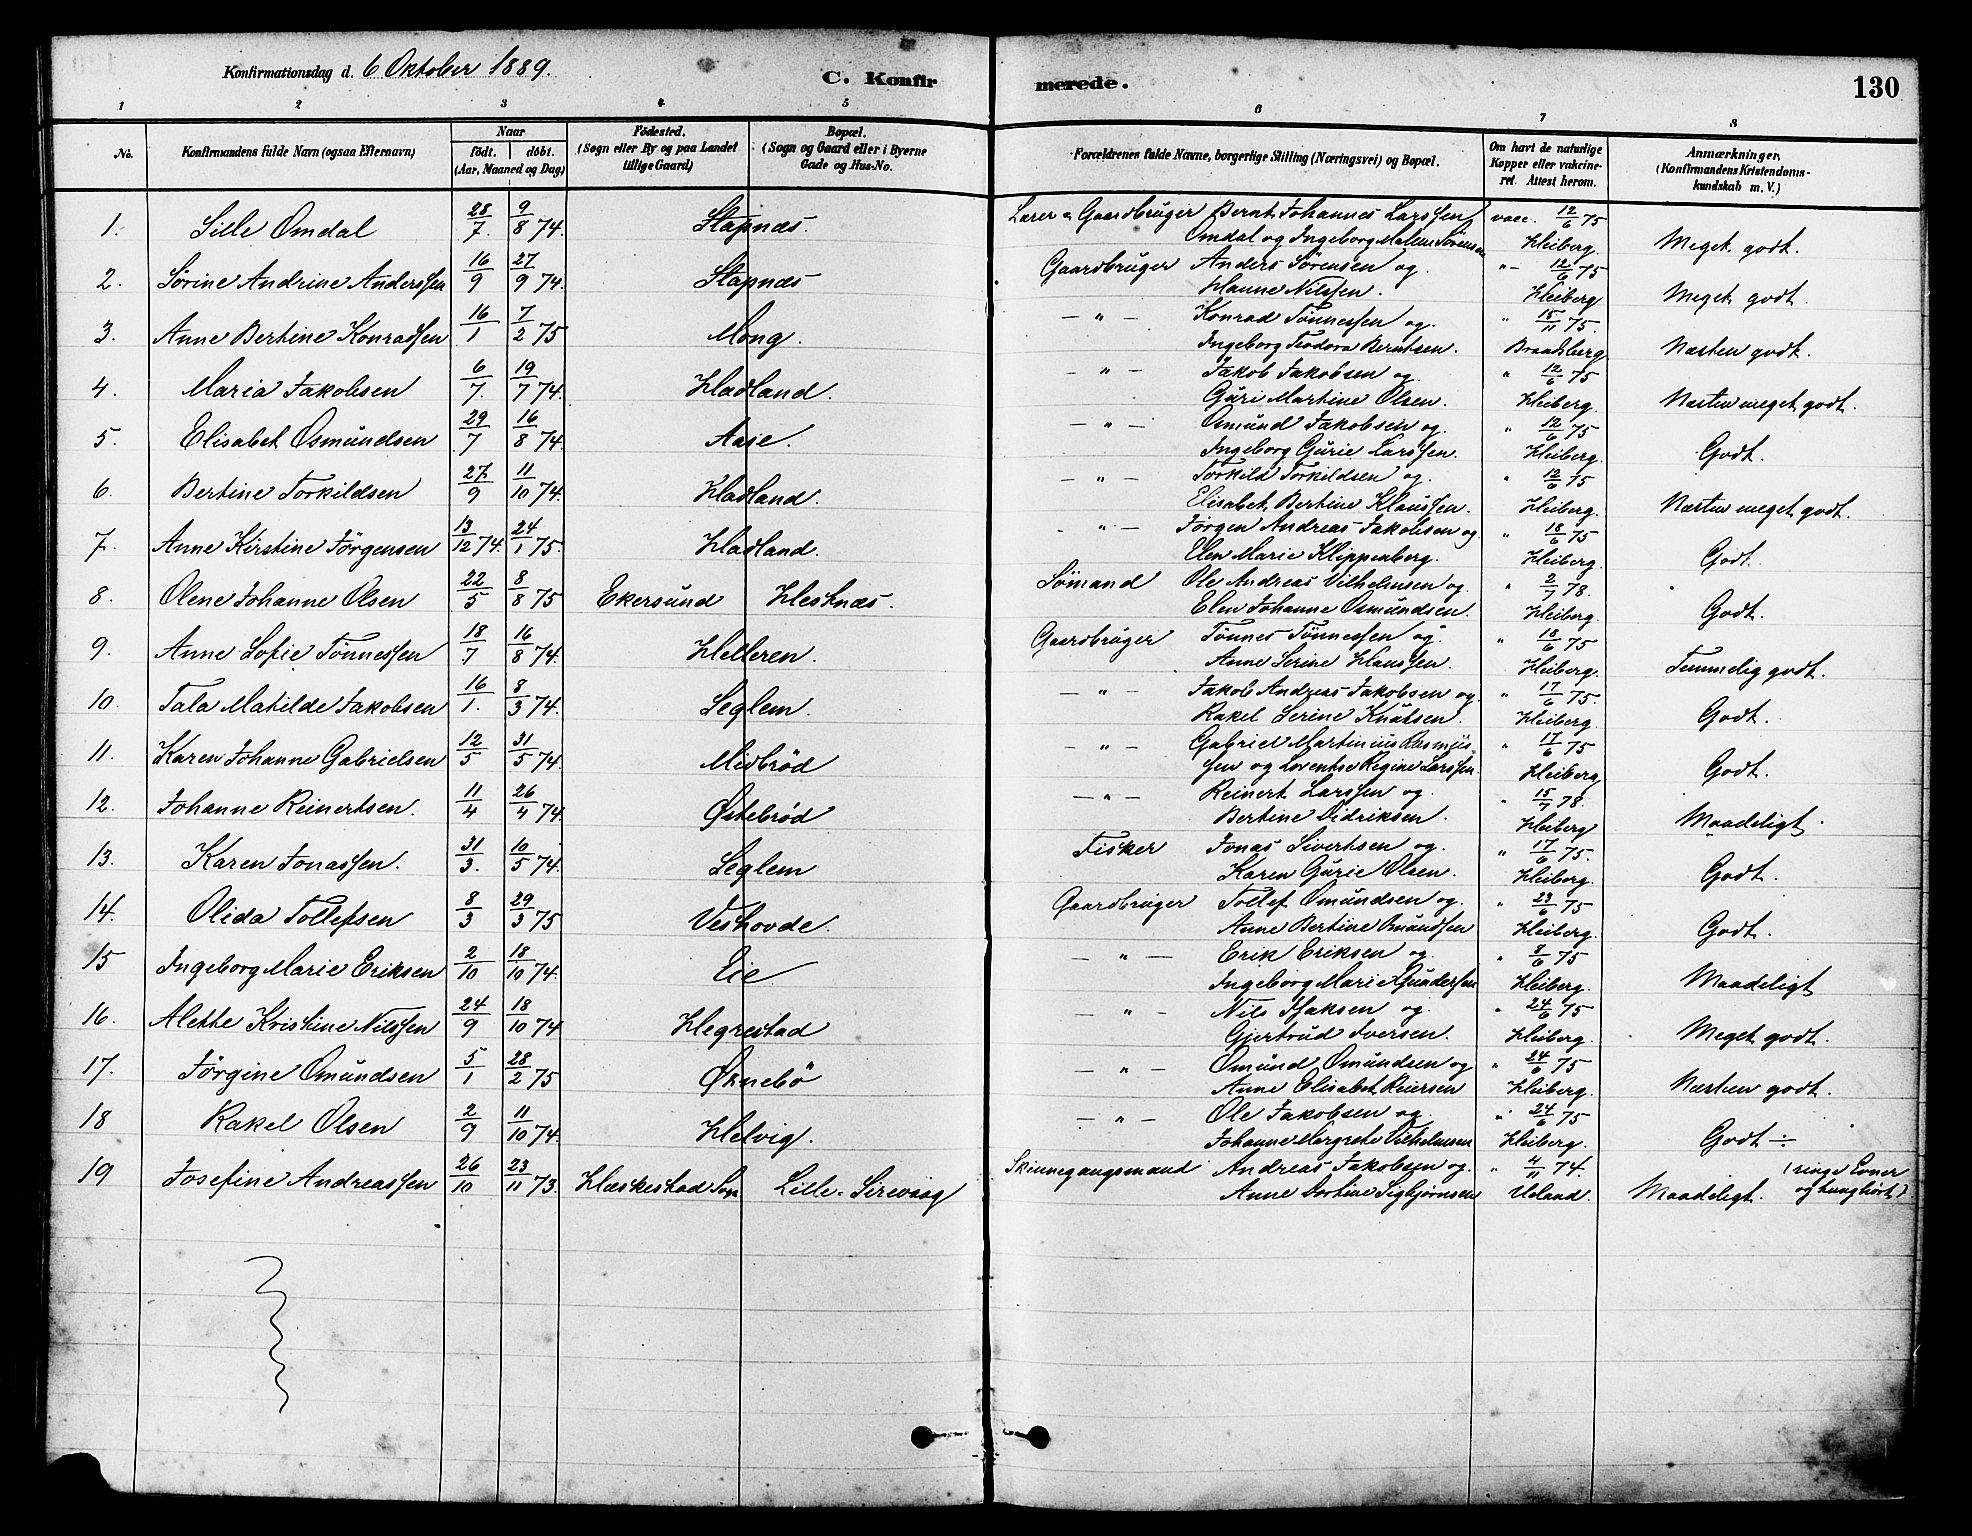 Konfirmationsdag d. 6 Oktober 1889.
C. Konfirmerede.
130
1 2 3 4 5 6 7 8
No.
Konfirmandens fulde Navn (ogsaa Efternavn)
Naar
födt. döbt.
(Aar, Maaned og Dag)
Födested.
(Sogn eller By og paa Landet
tillige Gaard)
Bopæl.
(Sogn og Gaard eller i Byerne
Gade og Hus-No.
Forældrenes fulde Navne, borgerlige Stilling (Næringsvei) og Bopæl.
Om havt de naturlige
Kopper eller vakcine-
ret. Attest herom.
Anmærkninger.
(Konfirmandens Kristendoms-
kundskab m. V.)
1. Sille Omdal 28/7 9/8 74. Stapnæs. Lærer & Gaardbruger Bernt Johannes Larssen vacc. 12/6 75
Omdal og Ingeborg Malene Sørensen Heiberg. Meget godt.
2. Sörine Andrine Anderssen 16/9 27/9 74. Stapnæs Gaardbruger Anders Sørensen og " 12/6 75
Hanne Nilssen. Heiberg Meget godt.
3. Anne Bertine Konradsen 16/1 7/2 75 Mong. — " — Konrad Tønnessen og. " 15/11 75.
Ingeborg Teodora Berntsen. Brandsberg Næsten godt.
4. Maria Jakobsen 6/7. 19/7 74. Hadland. — " — Jakob Jakobsen og " 12/6 75
Guri Martine Olsen. Heiberg. Næsten meget godt.
5. Elisabet Osmundsen 29/7 16/8 74. Aase. — " — Omund Jakobsen og. " 12/6 75
Ingeborg Gurie Larssen. Heiberg. Godt.
6. Bertine Torkildsen 27/9 11/10 74. Hadland. — " — Torkild Torkildsen og. " 12/6 75
Elisabet Bertine Klaussen. Heiberg. Næsten meget godt.
7. Anne Kirstine Jörgensen 13/12 74. 24/1 75. Hadland. " — Jørgen Andreas Jakobsen og " 18/6 75
Elen Marie Klippenberg. Heiberg. Godt.
8. Olene Johanne Olsen 22/5 8/8 75 Ekersund Hestnæs. Sømand Ole Andreas Vilhelmsen og " 2/7 78.
Elen Johanne Osmundsen. Heiberg. Godt.
9. Anne Sofie Tönnessen 18/7 16/8 74. Helleren. Gaardbruger Tönnes Tönnessen og " 18/6 75
Anne Serine Hanssen. Heiberg. Temmelig godt.
10. Tala Matilde Jakobsen 16/1. 8/3 74. Seglem. — " — Jakob Andreas Jakobsen og " 17/6 75.
Rakel Serine Knutsen. Heiberg. Godt.
11. Karen Johanne Gabrielsen 12/5 31/5 74. Midbrød — " — Gabriel Martinius Rasmus- " 17/6 75
sen og Lorentse Regine Larssen Heiberg Godt.
12. Johanne Reinertsen. 11/4 26/4 74. Østebrød — " — Reinert Larssen og. " 15/7 78.
Bertine Didriksen. Heiberg Maadeligt.
13. Karen Jonassen. 31/3. 10/5 74. Seglem Fisker Jonas Sivertsen og. " 17/6 75.
Karen Gurie Olsen. Heiberg. Godt.
14. Olida Tollefsen 8/3 29/3 75 Veshovde. Gaardbruger Tollef Omundsen og. " 23/6 75
Anne Bertine Omundsen Heiberg. Godt.
15 Ingeborg Marie Eriksen 2/10 18/10 74. Eie — " — Erik Eriksen og " 8/6 75
Ingeborg Marie Gundersen Heiberg. Maadeligt
16. Alette Kristine Nilssen 24/9 18/10 74 Hegrestad — " — Nils Isaksen og. " 24/6 75
Gjertrud Iversen. Heiberg. Meget godt.
17. Jörgine Omundsen 5/1 28/2 75 Øknebö — " — Omund Omundsen og " 24/6 75
Anne Elisabet Reiersen Heiberg. Næsten godt.
18 Rakel Olsen 2/9 11/10 74. Helvig. — " — Ole Jakobsen og. " 24/6 75
Johanne Margrete Vilhelmsen Heiberg. Godt ÷
19 Josefine Andreassen 26/10 23/11 73. Hæskestad Sogn Lille-Sirevaag Skinnegangsmand Andreas Jakobsen og. " 4/11 74. (ringe Evner
Anne Bortine Sigbjørnsen Ueland. Maadeligt. og tunghørt)